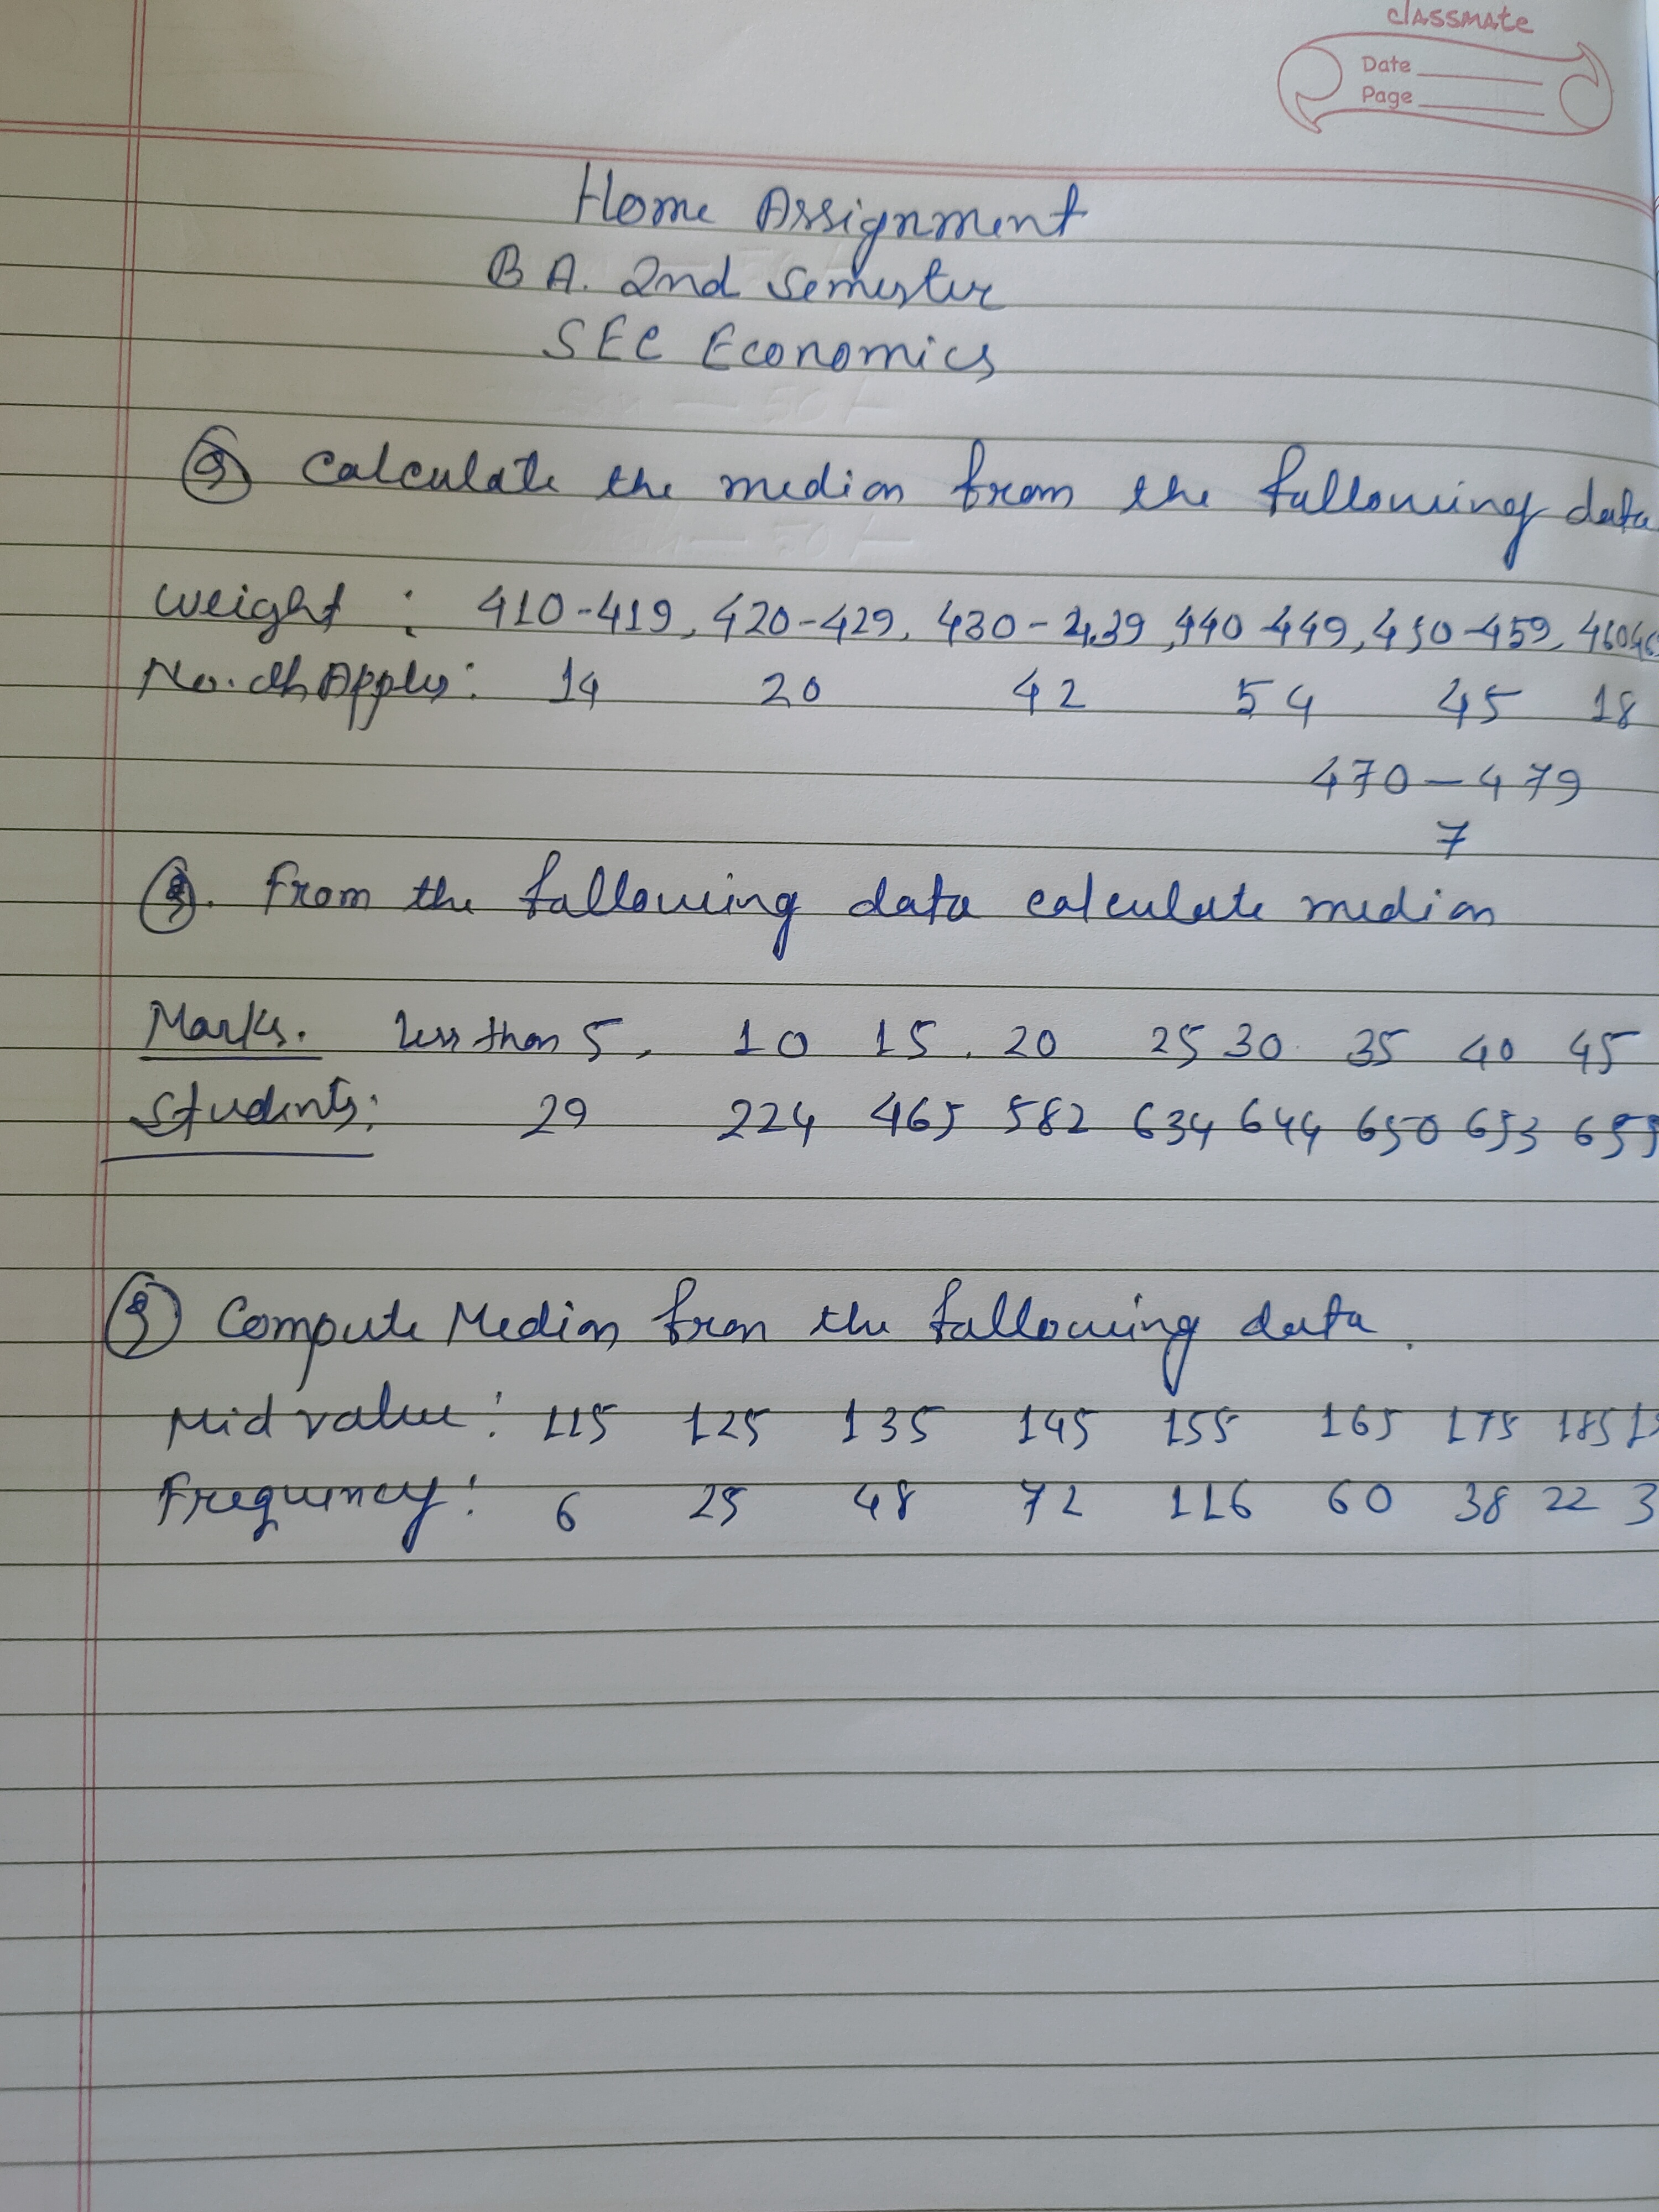 classmate
Date
Page
Home Assignment
B A. 2nd Semester
SEC Economics
Q Calculate the median from the following data
Weight : 410-419, 420-429, 430-439, 440-449, 450-459, 460-46
No. of Apples: 14 20 42 54 45 18
470-479
7
Q. From the following data calculate median
Marks. less than 5, 10 15. 20 25 30 35 40 45
Students: 29 224 465 582 634 644 650 653 655
Q Compute Median from the following data.
Mid value: 115 125 135 145 155 165 175 185 1
Frequency: 6 25 48 72 116 60 38 22 3